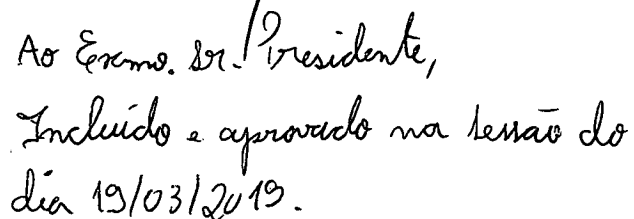 Ao Exmo. Sr. Presidente,
Incluído e aprovado na sessão do
dia 19/03/2019.